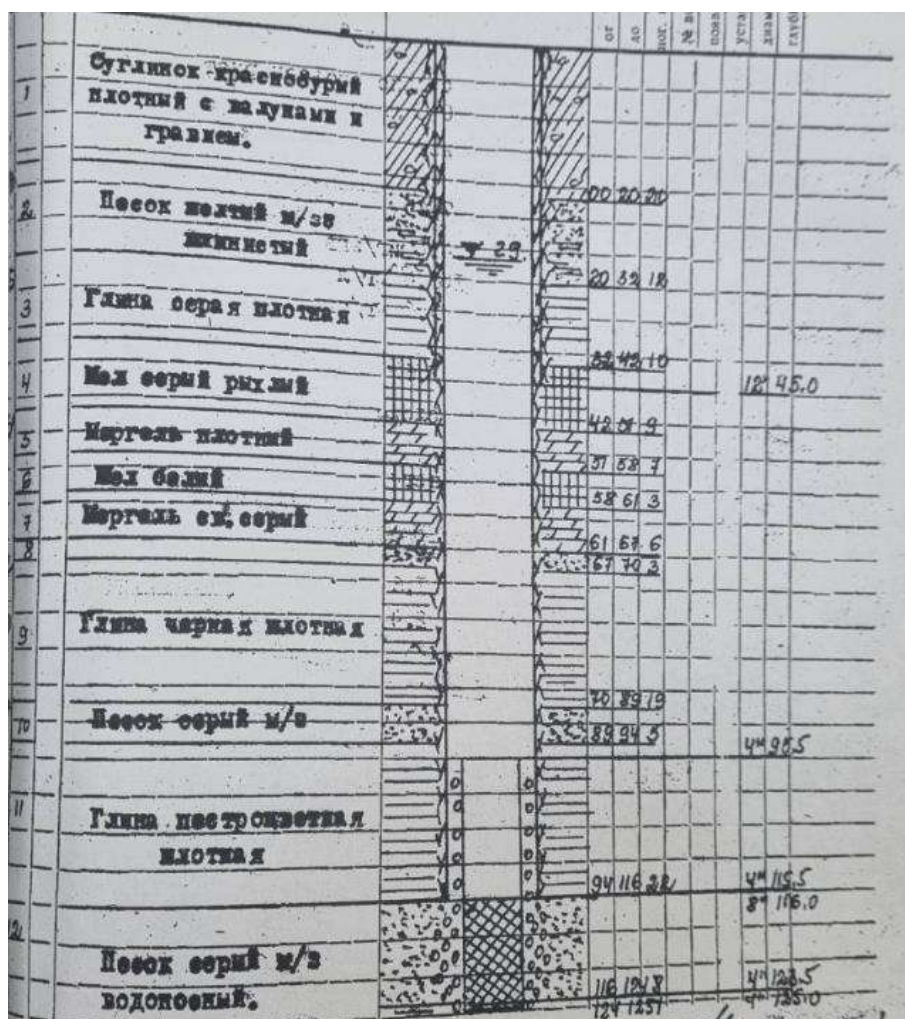 от
до
пог.
№
1
Суглинок краснобурый
плотный с валунами и
гравием.
00 20 20
2
Песок желтый м/зе
глинистый
29
20 32 12
3
Глина серая плотная
32 42 10
4
Мел серый рыхлый
12" 45.0
42 51 9
5
Мергель плотный
51 58 7
6
Мел белый
58 61 3
7
Мергель св. серый
61 67 6
8
67 70 3
9
Глина черная плотная
70 89 19
10
Песок серый м/з
89 94 5
4" 95.5
11
Глина пестроцветная
плотная
94 116 22
4" 115.5
8" 116.0
2
Песок серый м/з
водоносный.
116 124 8
4" 123.5
124 125 1
4" 125.0